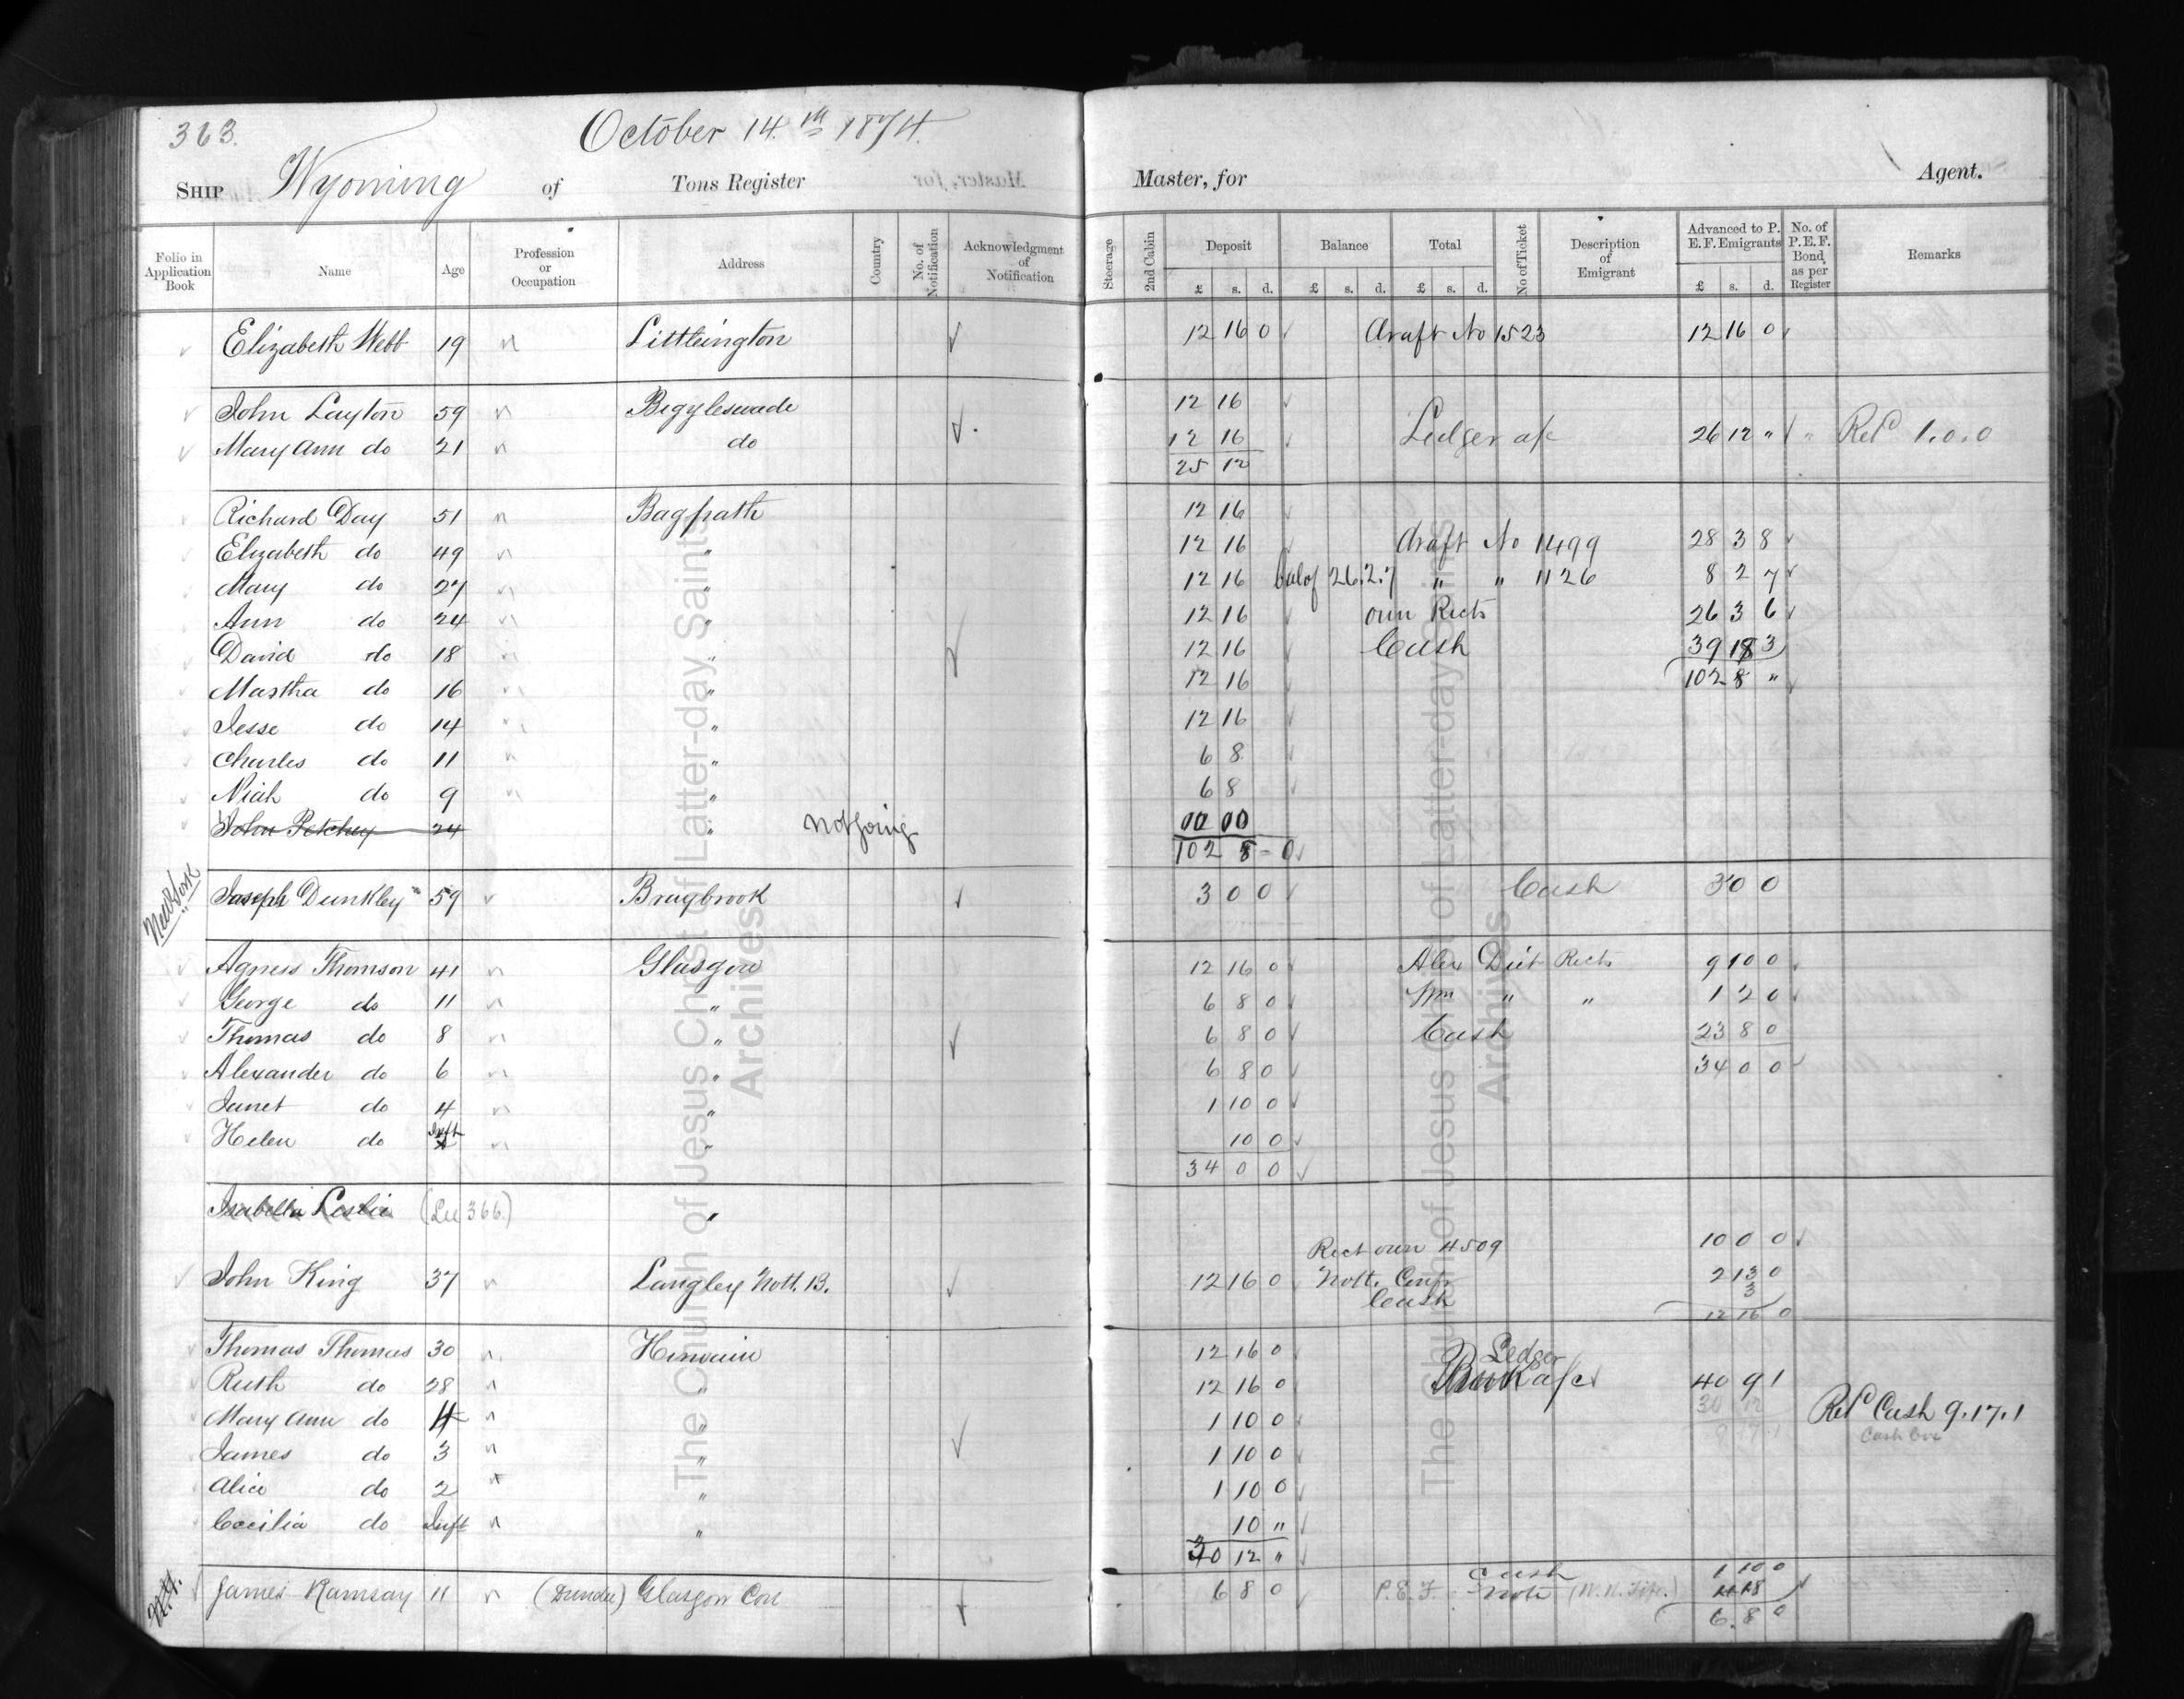 363.
October 14.th 1874.
SHIP Wyoming of Tons Register Master, for Agent.
Folio in Application Book Name Age Profession or Occupation Address Country No. of Notification Acknowledgment of Notification Steerage 2nd Cabin Deposit Balance Total No of Ticket Description of Emigrant Advanced to P. E. F. Emigrants No. of P. E. F. Bond as per Register Remarks
£ s. d. £ s. d. £ s. d. £ s. d.
Elizabeth Webb 19 Littleington 12 16 0 draft No 1523 12 16 0
John Layton 59 Begyleswade 12 16
Mary Ann do 21 do 12 16 Ledger a/c 26 12 " " Red 1.0.0
25 12
Richard Day 51 Bagpath 12 16
Elizabeth do 49 " 12 16 draft No 1499 28 3 8
Mary do 27 " 12 16 bal of 26.2.7 " " 1126 8 2 7
Ann do 24 " 12 16 own Rects 26 3 6
David do 18 " 12 16 Cash 39 18 3
Martha do 16 " 12 16 102 8 "
Jesse do 14 " 12 16
Charles do 11 " 6 8
Niah do 9 " 6 8
John Petchey 24 " not going 00 00
102 8 - 0
New York
Joseph Dunkley 59 Brugbrook 3 0 0 Cash 3 0 0
Agness Thomson 41 Glasgow 12 16 0 Alex Dict Rects 9 10 0
George do 11 " 6 8 0 Wm " " 1 2 0
Thomas do 8 " 6 8 0 Cash 23 8 0
Alexander do 6 " 6 8 0 34 0 0
Janet do 4 " 1 10 0
Helen do Inft " 10 0
34 0 0
Isabella Leslie (See 366.) "
Rect own 4509 10 0 0
John King 37 Langley Nott. B. 12 16 0 Nott. Conf 2 13 0
Cash 3
12 16 0
Thomas Thomas 30 Hirwain 12 16 0 Ledger
Ruth do 28 " 12 16 0 Book a/c 40 9 1
Mary Ann do 4 " 1 10 0 30 12 Red Cash 9.17.1
James do 3 " 1 10 0 9 17 1 Cash
Alice do 2 " 1 10 0
Cecilia do Inft " 10 "
30 12 "
Cash 1 10 0
James Ramsay 11 (Dundee) Glasgow Con 6 8 0 P.E.F. Note (W. N. Fife.) 4 18
6. 8 0
The Church of Jesus Christ of Latter-day Saints
Archives
The Church of Jesus Christ of Latter-day Saints
Archives